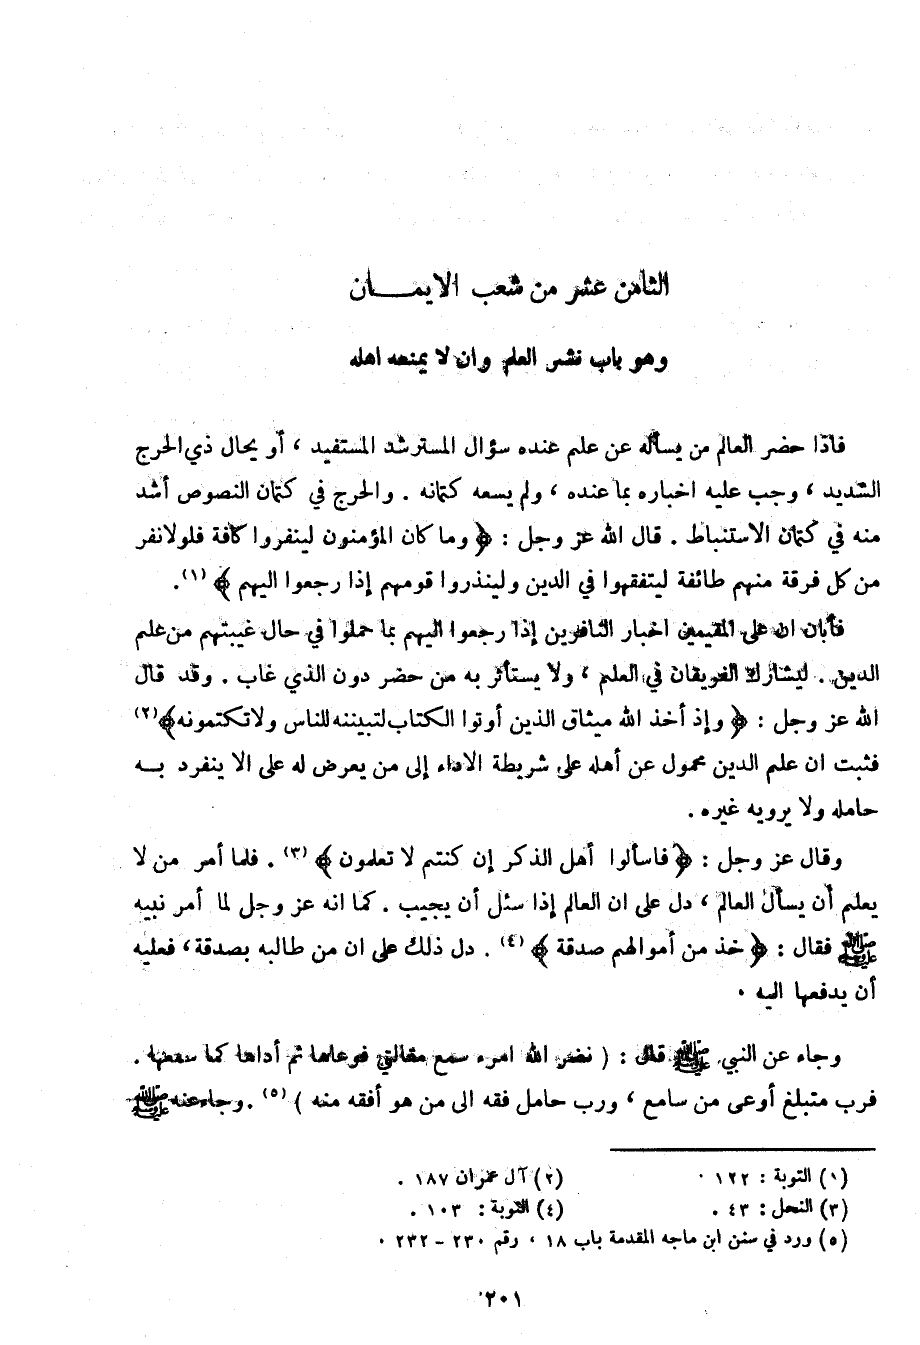 الثامن عشر من شعب الايمـــان
وهو باب نشر العلم وان لا يمنعه اهله
فاذا حضر العالم من يسأله عن علم عنده سؤال المسترشد المستفيد ، أو بحال ذي الحرج
الشديد ، وجب عليه اخباره بما عنده ، ولم يسعه كتمانه . والحرج في كتمان النصوص أشد
منه في كتمان الاستنباط . قال الله عز وجل : ﴿ وما كان المؤمنون لينفروا كافة فلولا نفر
من كل فرقة منهم طائفة ليتفقهوا في الدين ولينذروا قومهم إذا رجعوا اليهم ﴾ (١).
فأبان ان على المقيمين اخبار النافرين إذا رجعوا اليهم بما حملوا في حال غيبتهم من علم
الدين . ليشارك الفريقان في العلم ، ولا يستأثر به من حضر دون الذي غاب . وقد قال
الله عز وجل : ﴿ وإذ أخذ الله ميثاق الذين أوتوا الكتاب لتبيننه للناس ولا تكتمونه ﴾(٢)
فثبت ان علم الدين محمول عن أهله على شريطة الاداء إلى من يعرض له على الا ينفرد بــه
حامله ولا يرويه غيره .
وقال عز وجل : ﴿ فاسألوا أهل الذكر إن كنتم لا تعلمون ﴾ (٣) . فلما أمر من لا
يعلم أن يسأل العالم ، دل على ان العالم إذا سئل أن يجيب . كما انه عز وجل لما أمر نبيه
ﷺ فقال : ﴿ خذ من أموالهم صدقة ﴾ (٤) . دل ذلك على ان من طالبه بصدقة ، فعليه
أن يدفعها اليه .
وجاء عن النبي ﷺ قال : ( نضر الله امرء سمع مقالتي فوعاها ثم أداها كما سمعها .
فرب متبلغ أوعى من سامع ، ورب حامل فقه الى من هو أفقه منه ) (٥) . وجاء عنه ﷺ
(١) التوبة : ١٢٢ . (٢) آل عمران ١٨٧ .
(٣) النحل : ٤٣ . (٤) التوبة : ١٠٣ .
(٥) ورد في سنن ابن ماجه المقدمة باب ١٨ ، رقم ٢٣٠ – ٢٣٢ .
٢٠١